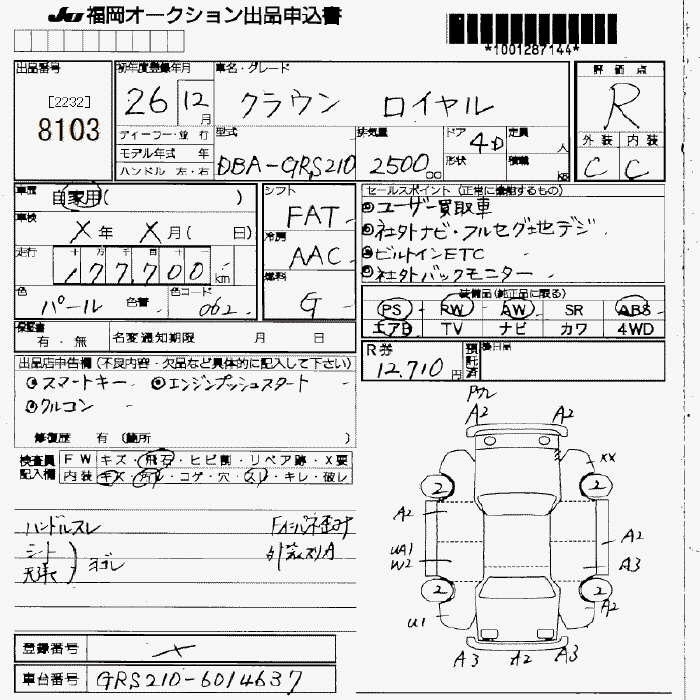 JU 福岡オークション出品申込書
*1001287144*
出品番号
[2232]
8103
初年度登録年月
26 12 月
車名・グレード
クラウン ロイヤル
評価点
R
外装 内装
C C
ディーラー・並行
モデル年式 年
ハンドル 左・右
型式
DBA-GRS210
排気量
2500 cc
ドア 4D
形状
定員 人
積載 kg
車歴
自家用( )
車検
X 年 X 月( 日)
走行
十 万 千 百 十
177,700 km
色
パール 色替
色コード
062
シフト
FAT
冷房
AAC
燃料
G
セールスポイント (正常に機能するもの)
ユーザー買取車
社外ナビ・フルセグ地デジ
ビルトインETC
社外バックモニター
装備品(純正品に限る)
PS PW AW SR ABS
エアB TV ナビ カワ 4WD
保証書
有・無
名変通知期限 月 日
R券
12,710 円
預託済
後日品
出品店申告欄(不良内容・欠品など具体的に記入して下さい)
スマートキー エンジンプッシュスタート
クルコン
修復歴 有 (箇所 )
検査員記入欄
FW キズ・飛石・ヒビ割・リペア跡・X要
内装 キズ・汚レ・コゲ・穴・スレ・キレ・破レ
ハンドルスレ
シート
天張
ヨゴレ
外装スリA
A2 A2
XX
2 2
A2
A2
UA1
W2
A3
2 2
A2
U1
A3 A2 A3
登録番号 X
車台番号 GRS210-6014637